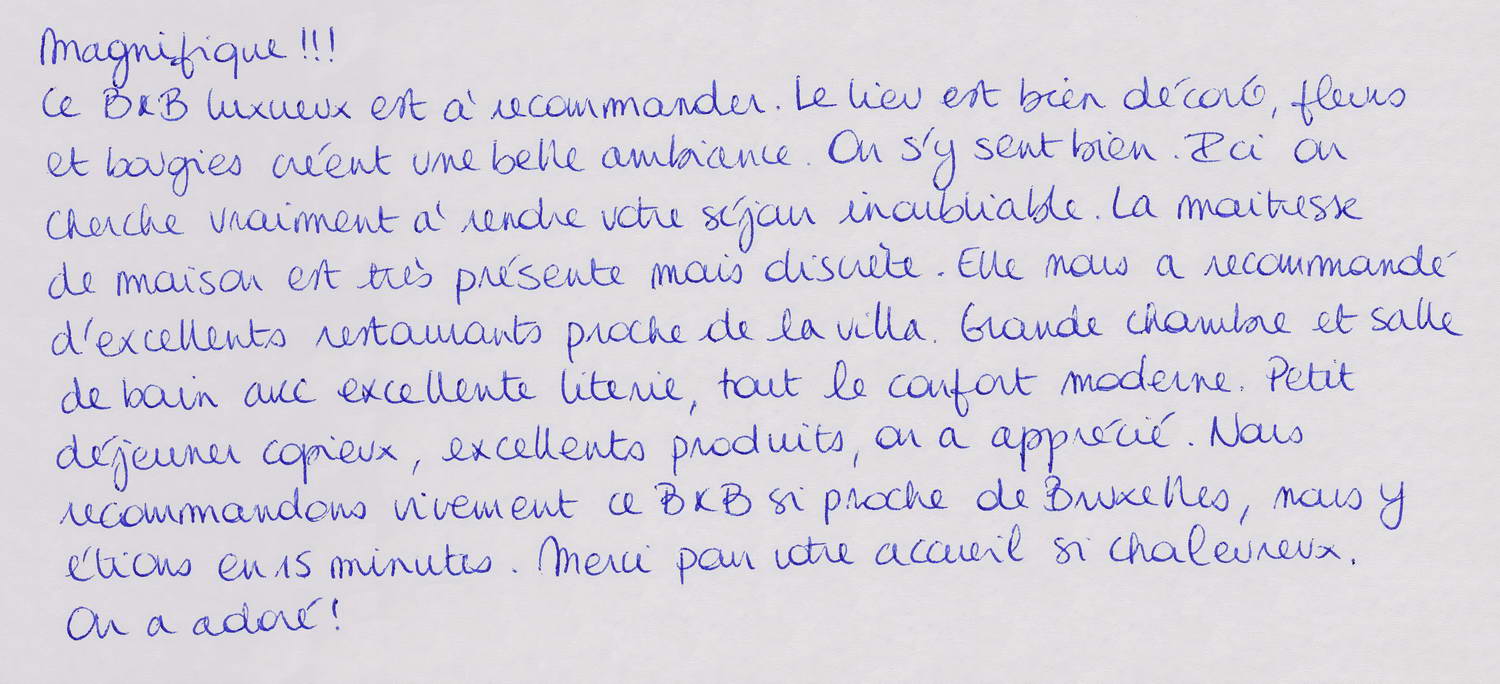 Magnifique !!!
Ce B&B luxueux est à recommander. Le lieu est bien décoré, fleurs
et bougies créent une belle ambiance. On s'y sent bien. Ici on
cherche vraiment à rendre votre séjour inoubliable. La maitresse
de maison est très présente mais discrète. Elle nous a recommandé
d'excellents restaurants proche de la villa. Grande chambre et salle
de bain avec excellente literie, tout le confort moderne. Petit
déjeuner copieux, excellents produits, on a apprécié. Nous
recommandons vivement ce B&B si proche de Bruxelles, nous y
étions en 15 minutes. Merci pour votre accueil si chaleureux.
On a adoré !